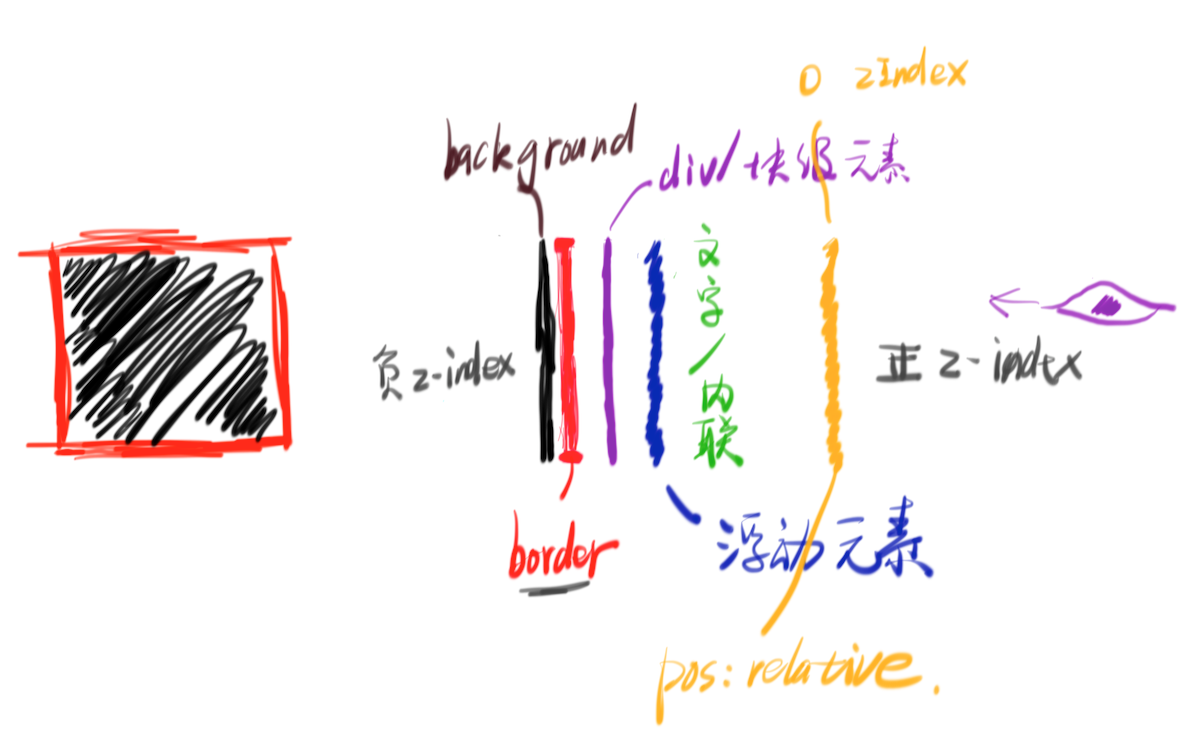 0 zIndex
background
div/块级元素
文字/内联
负z-index
正z-index
border
浮动元素
pos: relative.